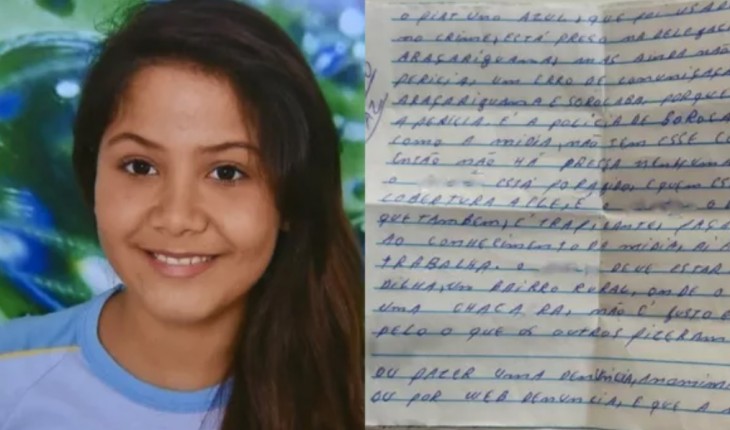 O FIAT UNO AZUL, QUE FOI USAD
NO CRIME, ESTÁ PRESO NA DELEGAC
ARAÇARIGUAMA, MAS AINDA NÃO
PERICIA, UM ERRO DE COMUNICAÇÃ
ARAÇARIGUAMA E SOROCABA, PORQUE
A PERICIA, É A POLICIA DE SOROCA
COMO A MIDIA, NÃO TEM ESSE CO
ENTÃO NÃO HÁ PRESSA NENHUMA
O ESTÁ FORAGIDO, E QUEM ES
COBERTURA A ELE, É O
QUE TAMBEM, É TRAFICANTE, FAÇA
AO CONHECIMENTO DA MIDIA, AI
TRABALHA. O DEVE ESTAR
UM BAIRRO RURAL, ONDE O
UMA CHACARA, NÃO É JUSTO
PELO O QUE OS OUTROS FIZERAM
OU FAZER UMA DENUNCIA, ANONIMA
OU POR WEB DENUNCIA, E QUE A